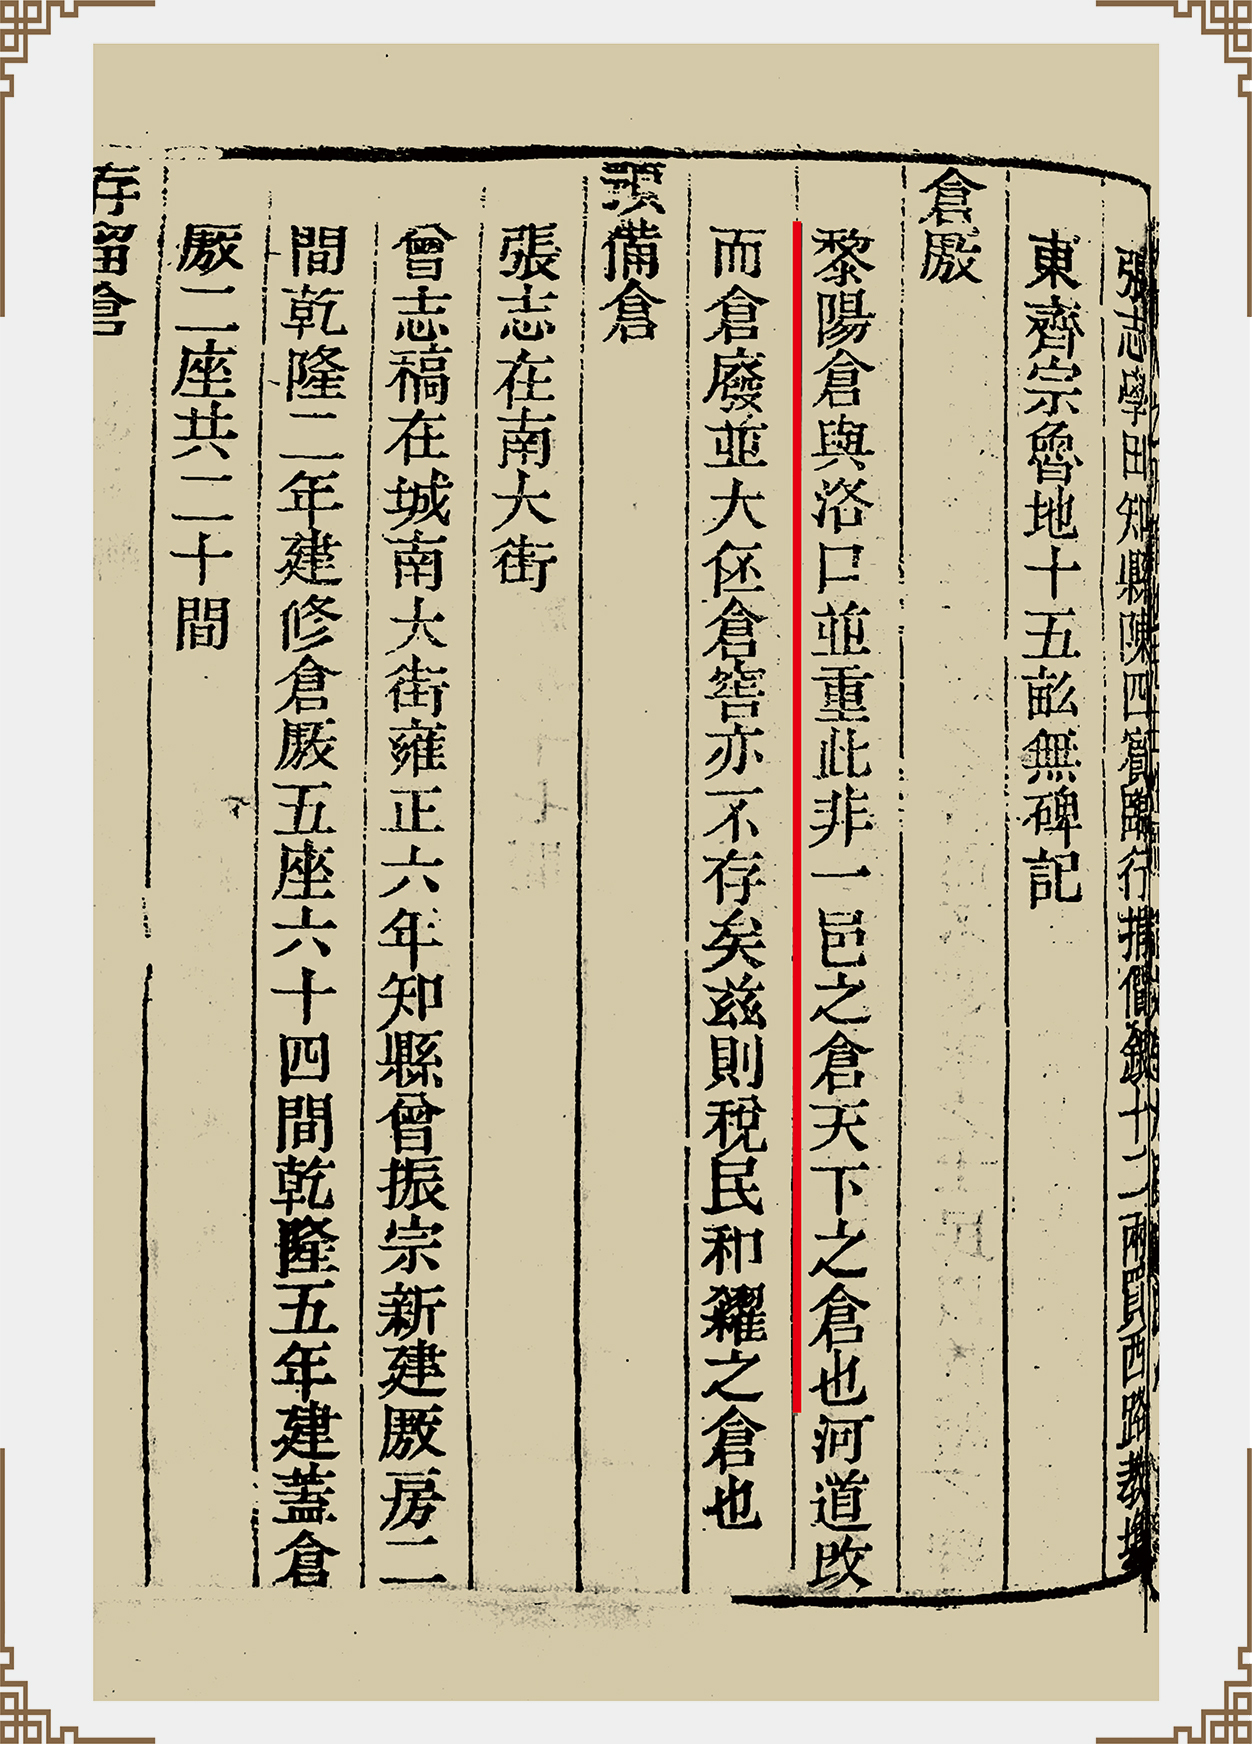 張志學田知縣陳四賓臨行捐價銀十二兩買西路教場
東齊宗魯地十五畝無碑記
倉厫
黎陽倉與洛口並重此非一邑之倉天下之倉也河道改
而倉廢並大伾倉窖亦不存矣兹則稅民和糴之倉也
預備倉
張志在南大街
曾志稿在城南大街雍正六年知縣曾振宗新建厫房二
間乾隆二年建修倉厫五座六十四間乾隆五年建蓋倉
厫二座共二十間
存留倉